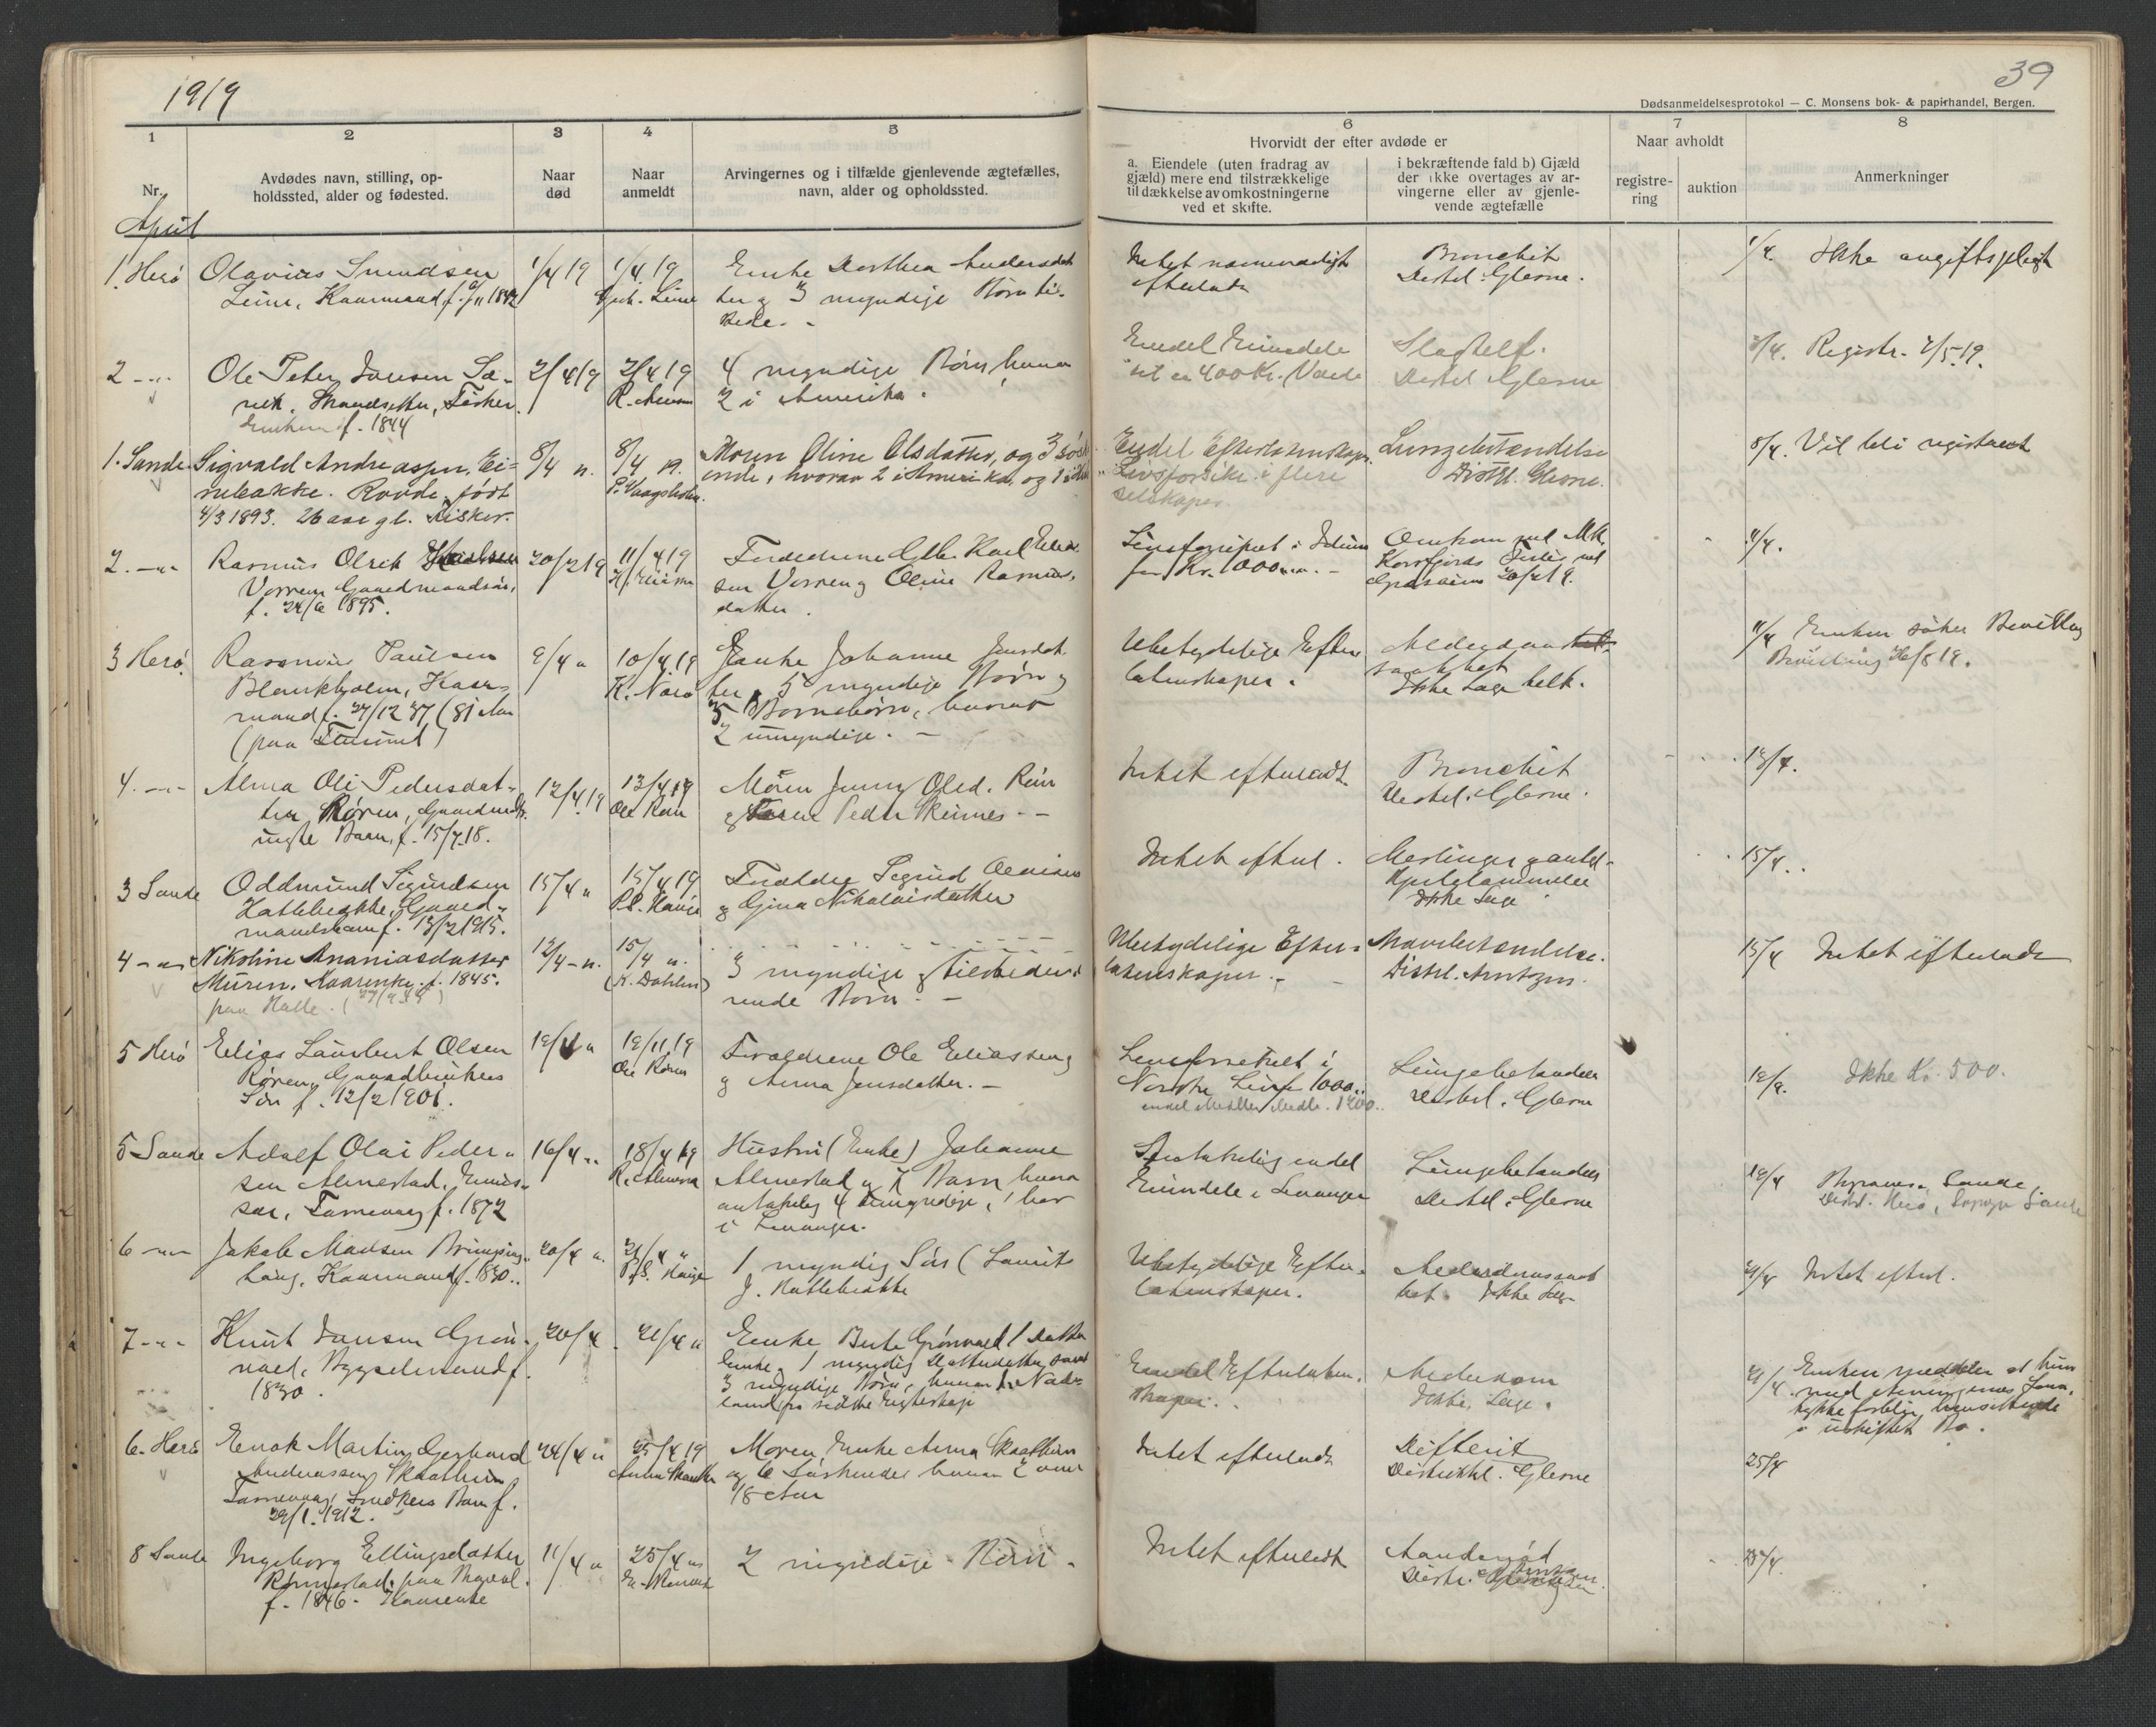 1919
39
Dødsanmeldelsesprotokol — C. Monsens bok- & papirhandel, Bergen.
1
2
3
4
5
6
7
8
Nr.
Avdødes navn, stilling, op-
holdssted, alder og fødested.
Naar
død
Naar
anmeldt
Arvingernes og i tilfælde gjenlevende ægtefælles,
navn, alder og opholdssted.
Hvorvidt der efter avdøde er
a. Eiendele (uten fradrag av
gjæld) mere end tilstrækkelige
til dækkelse av omkostningerne
ved et skifte.
i bekræftende fald b) Gjæld
der ikke overtages av ar-
vingerne eller av gjenle-
vende ægtefælle
Naar avholdt
registre-
ring
auktion
Anmerkninger
April
1. Herø
Olavius
Leine, Kaarmand f.
1/4 19
1/4 19
Enke Dorthea Andersdat
ter og 3 myndige Børn
Intet nævneværdigt
efterladt
Bronchit
Distrl. Glerne.
1/4
Ikke avgiftspligtig
2 -"-
Ole Peter Jansen
Fisker
Enkem. f. 1844
2/4 19
2/4 19
4 myndige Børn hvorav
2 i Amerika.
Endel Eiendele
til ca 400 Kr. Værdi
Slagtilf.
Distrl Glerne
2/4.
Registr. 2/5 19.
1. Sande
Sigvald Andreassen, Ei-
nebakke. Rovde, født
4/3 1893. 26 aar gl. Fisker.
8/4 n.
8/4 n.
P. Vaagsholm.
Moren Oline Olsdatter, og 3 søsk
ende, hvorav 2 i Amerika, og 1
Endel Efterladenskaper
Livsforsikr. i flere
selskaper
Lungebetændelse
Distrl. Glerne.
8/4
Vil bli registreret
2. -"-
Rasmus Olrik
Vorren Gaardmandsøn,
f. 24/6 1895.
20/2 19
11/4 19
Forældrene Gbr. Karl
sen Vorren og Oline Rasmus-
datter.
Livsforsikret i Idun
for Kr. 1000.
Omkom ved M.K.
Korsfjords Forlis ved
20/2 19.
11/4.
3 Herø
Rasmus Paulsen
Blankholm, Kaar-
mand f. 27/12 37 (81 Aar
(paa
9/4 "
10/4 19
K. Nærø
Enke Johanne Jensdat
ter, 5 myndige Børn og
5 Børnebørn, hvorav
2 umyndige. -
Ubetydelige Efter
ladenskaper.
Alderdoms
svakhet
Ikke Læge
11/4
Enken søker Bevilling
Bevilling
4. -"-
Alma Oli Pedersdat-
ter Røren,
ugte Barn, f. 15/7 18.
12/4 19
13/4 19
Ole Røren
Moren Jenny Olsd. Røren
og Faren Peder Skeines -
Intet efterladt
Bronchit
Distrl. Glerne.
13/4.
3 Sande
Oddmund Sigurdsen
Hatlebrekke, Gaard-
mandsbarn f. 13/2 1915.
15/4 "
15/4 19
P.S. Hauge
Forældre Sigurd Olaisen
og Gina Nikolaisdatter
Intet efterl.
Meslinger
Ikke Læge
15/4.
4 -"-
Nikoline Ananiasdatter
Muren. Kaarenke. f. 1845.
paa Halle.
12/4 - n.
15/4 n.
(K. Dahlen)
3 myndige og tilstedeværende Børn. -
Ubetydelige Efter-
ladenskaper. -
Mavebetændelse.
Distrl. Arntzen.
15/4
Intet efterladt
5 Herø
Elias Lambert Olsen
Røren, Gaardbrukers
Søn f. 12/2 1901.
19/4 "
Ole Røren
Forældrene Ole Eliassen
og Anna Jensdatter. -
Livsforsikret i
Norske Liv for 1000.
Lungebetændelse
Distrl. Glerne
19/4.
Ikke Kr. 500.
5 Sande
Adolf Olai Peder-
sen Almestad,
Larsnes f. 1872
16/4 "
18/4 19
R. Almestad
Hustru (Enke) Johanne
Almestad og 7 Barn hvorav
antakelig 4 umyndige, 1 bor
i Levanger.
Antakelig endel
Eiendele i Levanger
Lungebetændelse
Distrl. Glerne
19/4
Sande,
6 -"-
Jakob Madsen
Haug, Kaarmand f. 1830.
20/4 "
21/4 "
P.S. Hauge
1 myndig Søn (Laurits
J. Hatlebrekke
Ubetydelige Efter-
ladenskaper.
Alderdomssvak
het. Ikke Læge
21/4
Intet efterl.
7 -"-
Knut Jansen Grøn-
vold, Bygselmand f.
1830.
20/4
21/4 "
Enke Berte Grønvold 1 Datter
Enke, 1 myndig Datterdatter samt
3 myndige Børn, hvorav
Endel Efterladen-
skaper.
Alderdom
Ikke Læge.
21/4
Enken meddeler at hun
med Arvingernes Sam-
tykke forblir hensittende
i uskiftet Bo.
6. Herø
Enok Martin Gerhard
Andreassen Skaathun
f.
29/1. 1912.
24/4 "
25/4 19
Moren Enke Anna Skaathun
og 6 Søskende hvorav 2 over
18 Aar
Intet efterladt
Difterit
Distriktsl. Glerne
25/4
8 Sande
Ingeborg Ellingsdatter
Rønnestad,
f. 1846. Kaarenke
11/4 "
25/4 "
2 myndige Børn -
Intet efterladt
Aandenød
Distr. Arntzen
25/4.